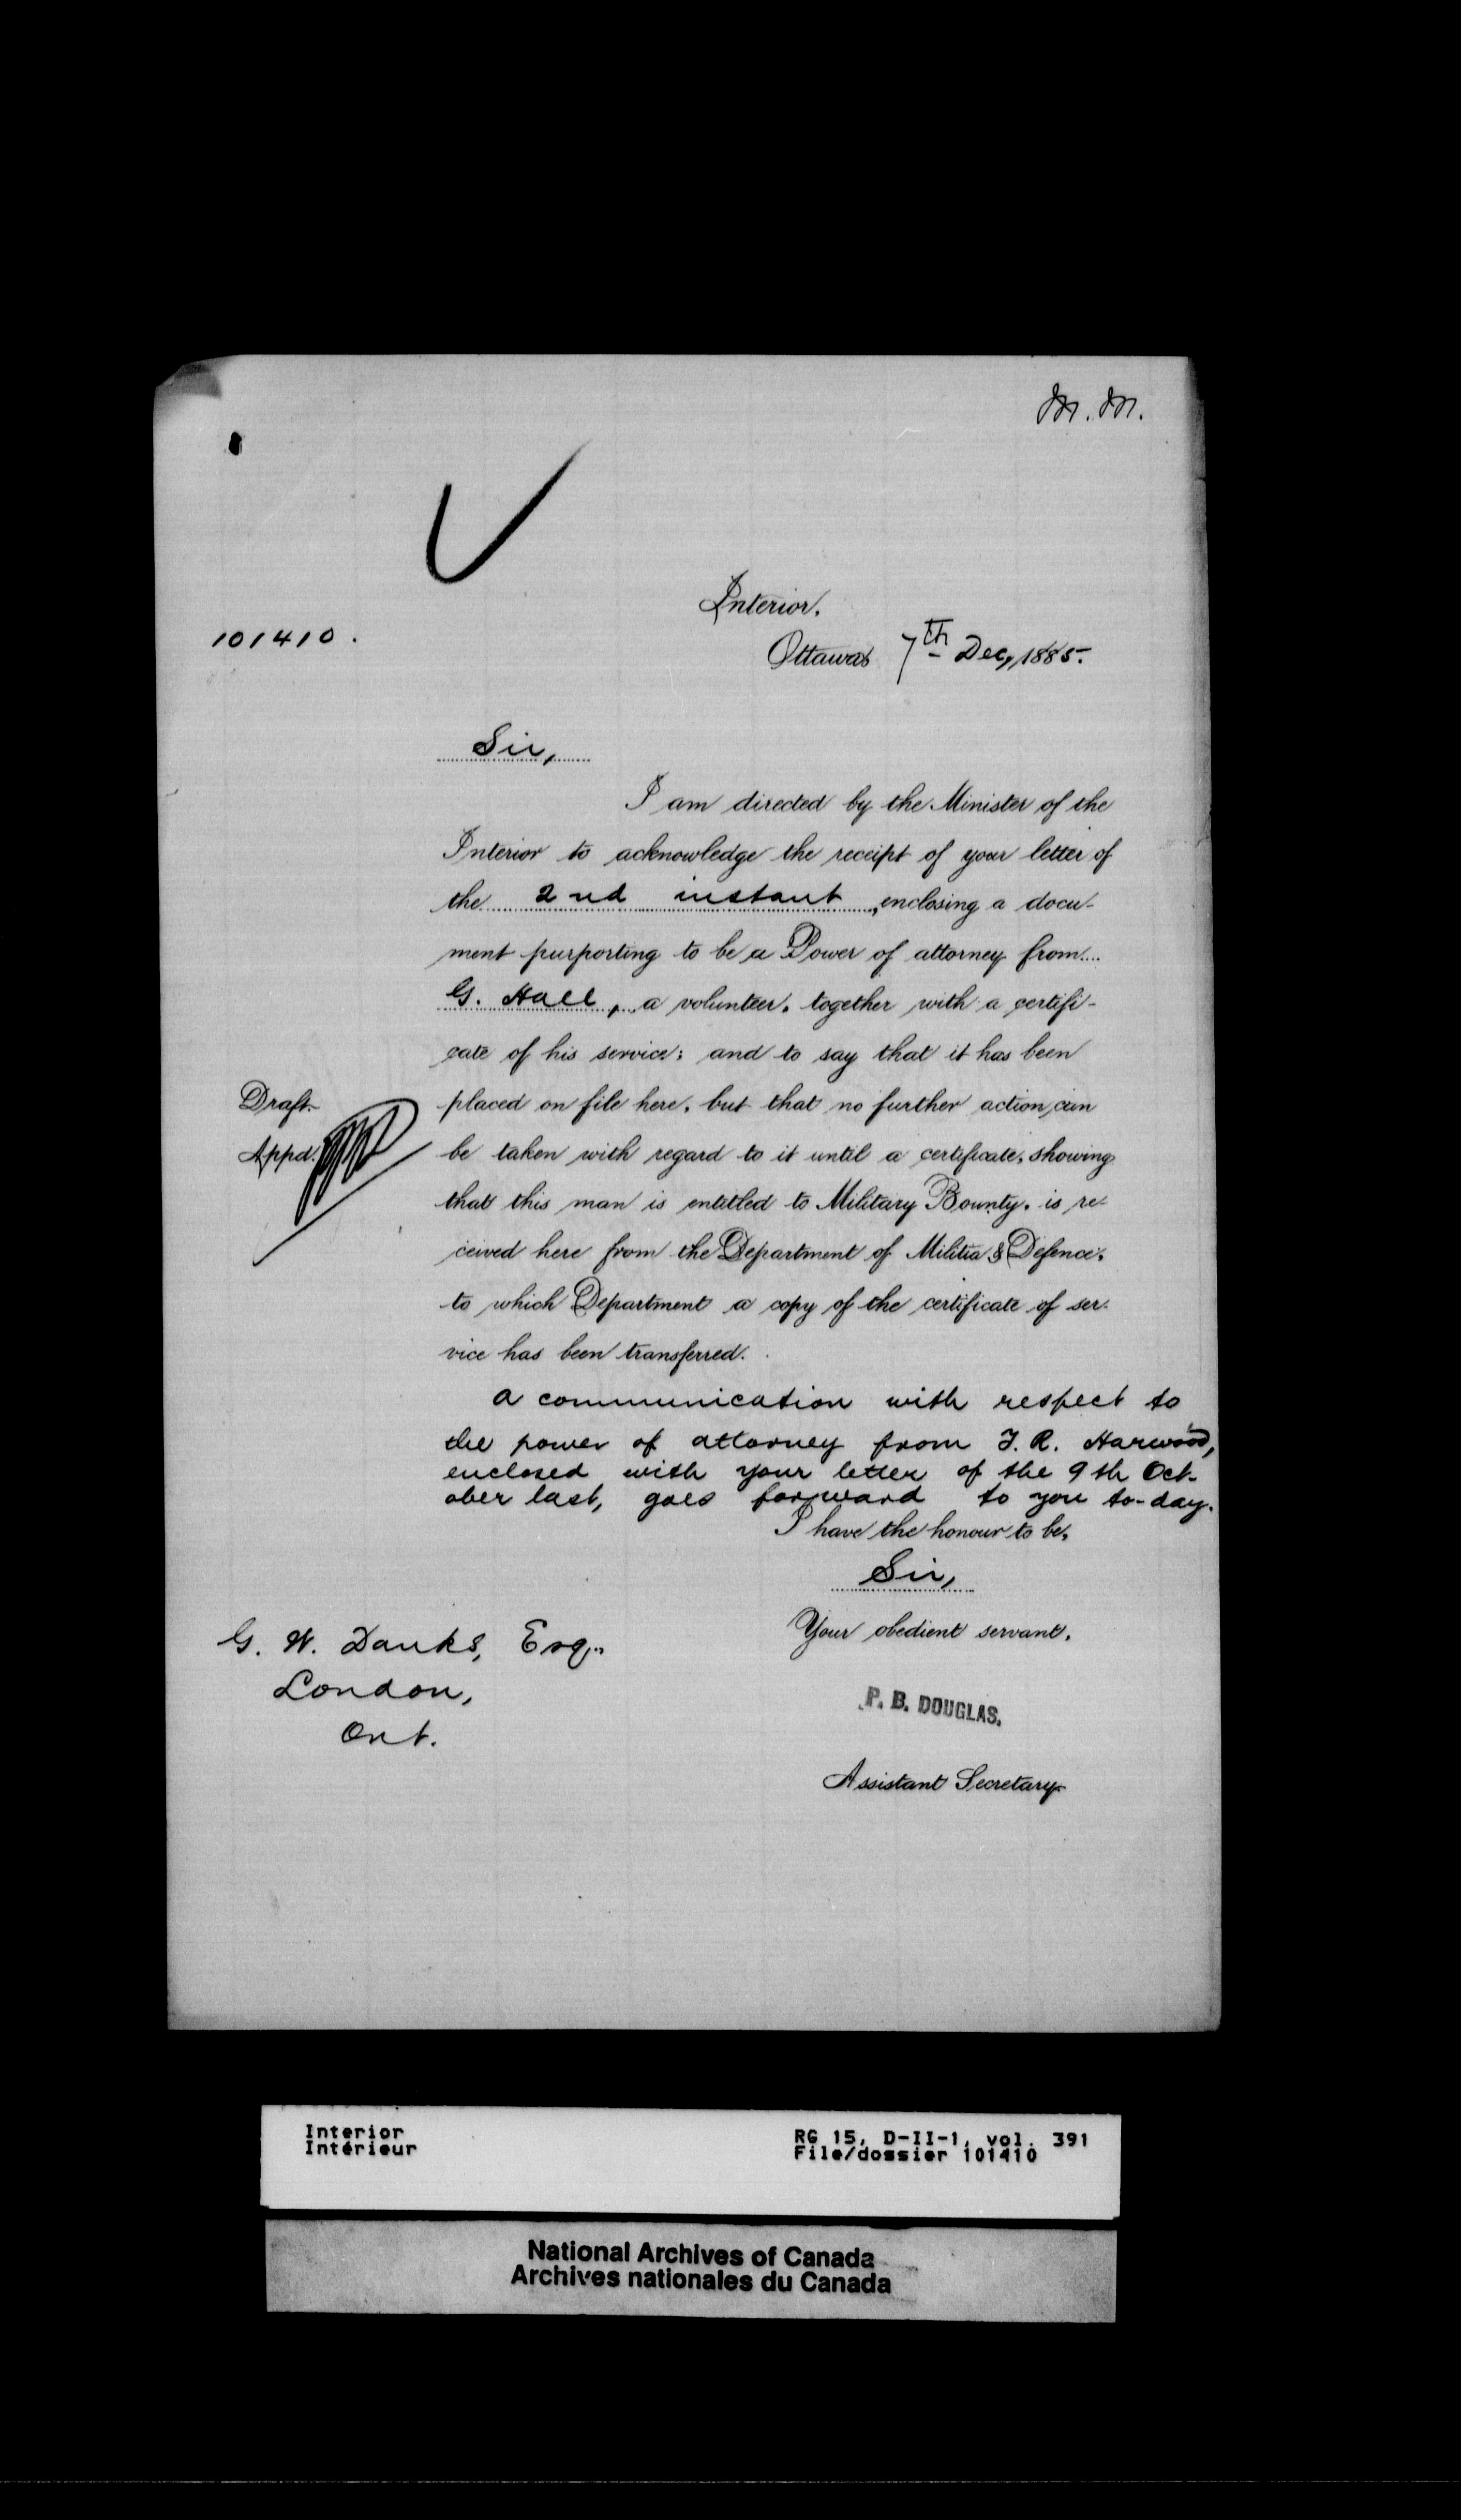 M. M.
Interior.
101410.
Ottawa 7th Dec, 1885.
Sir,
I am directed by the Minister of the
Interior to acknowledge the receipt of your letter of
the 2nd instant, enclosing a docu-
ment purporting to be a Power of attorney from
G. Hall, a volunteer, together with a certifi-
cate of his service; and to say that it has been
Draft placed on file here, but that no further action can
Appd. be taken with regard to it until a certificate, showing
that this man is entitled to Military Bounty, is re-
ceived here from the Department of Militia & Defence,
to which Department a copy of the certificate of ser-
vice has been transferred.
A communication with respect to
the power of attorney from J. R. Harwood,
enclosed with your letter of the 9th Oct-
ober last, goes forward to you to-day.
I have the honour to be,
Sir,
Your obedient servant,
G. W. Danks, Esq.
London,
Ont.
P. B. DOUGLAS.
Assistant Secretary
Interior
Intérieur
RG 15, D-II-1, vol. 391
File/dossier 101410
National Archives of Canada
Archives nationales du Canada